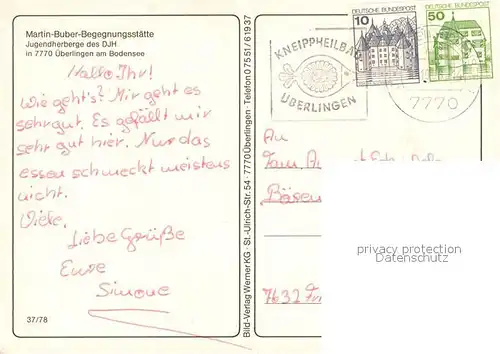 Martin-Buber-Begegnungsstätte
Jugendherberge des DJH
in 7770 Überlingen am Bodensee
Hallo Ihr!
Wie geht's? Mir geht es
sehr gut. Es gefällt mir
sehr gut hier. Nur das
essen schmeckt meistens
nicht.
Viele
Liebe Grüße
Eure
Simone
37/78
Bild-Verlag Werner KG · St.-Ulrich-Str. 54 · 7770 Überlingen · Telefon 07551/61937
10
DEUTSCHE BUNDESPOST
50
KNEIPPHEILBA
ÜBERLINGEN
7770
An
Fam.
Bären
7632
privacy protection
Datenschutz